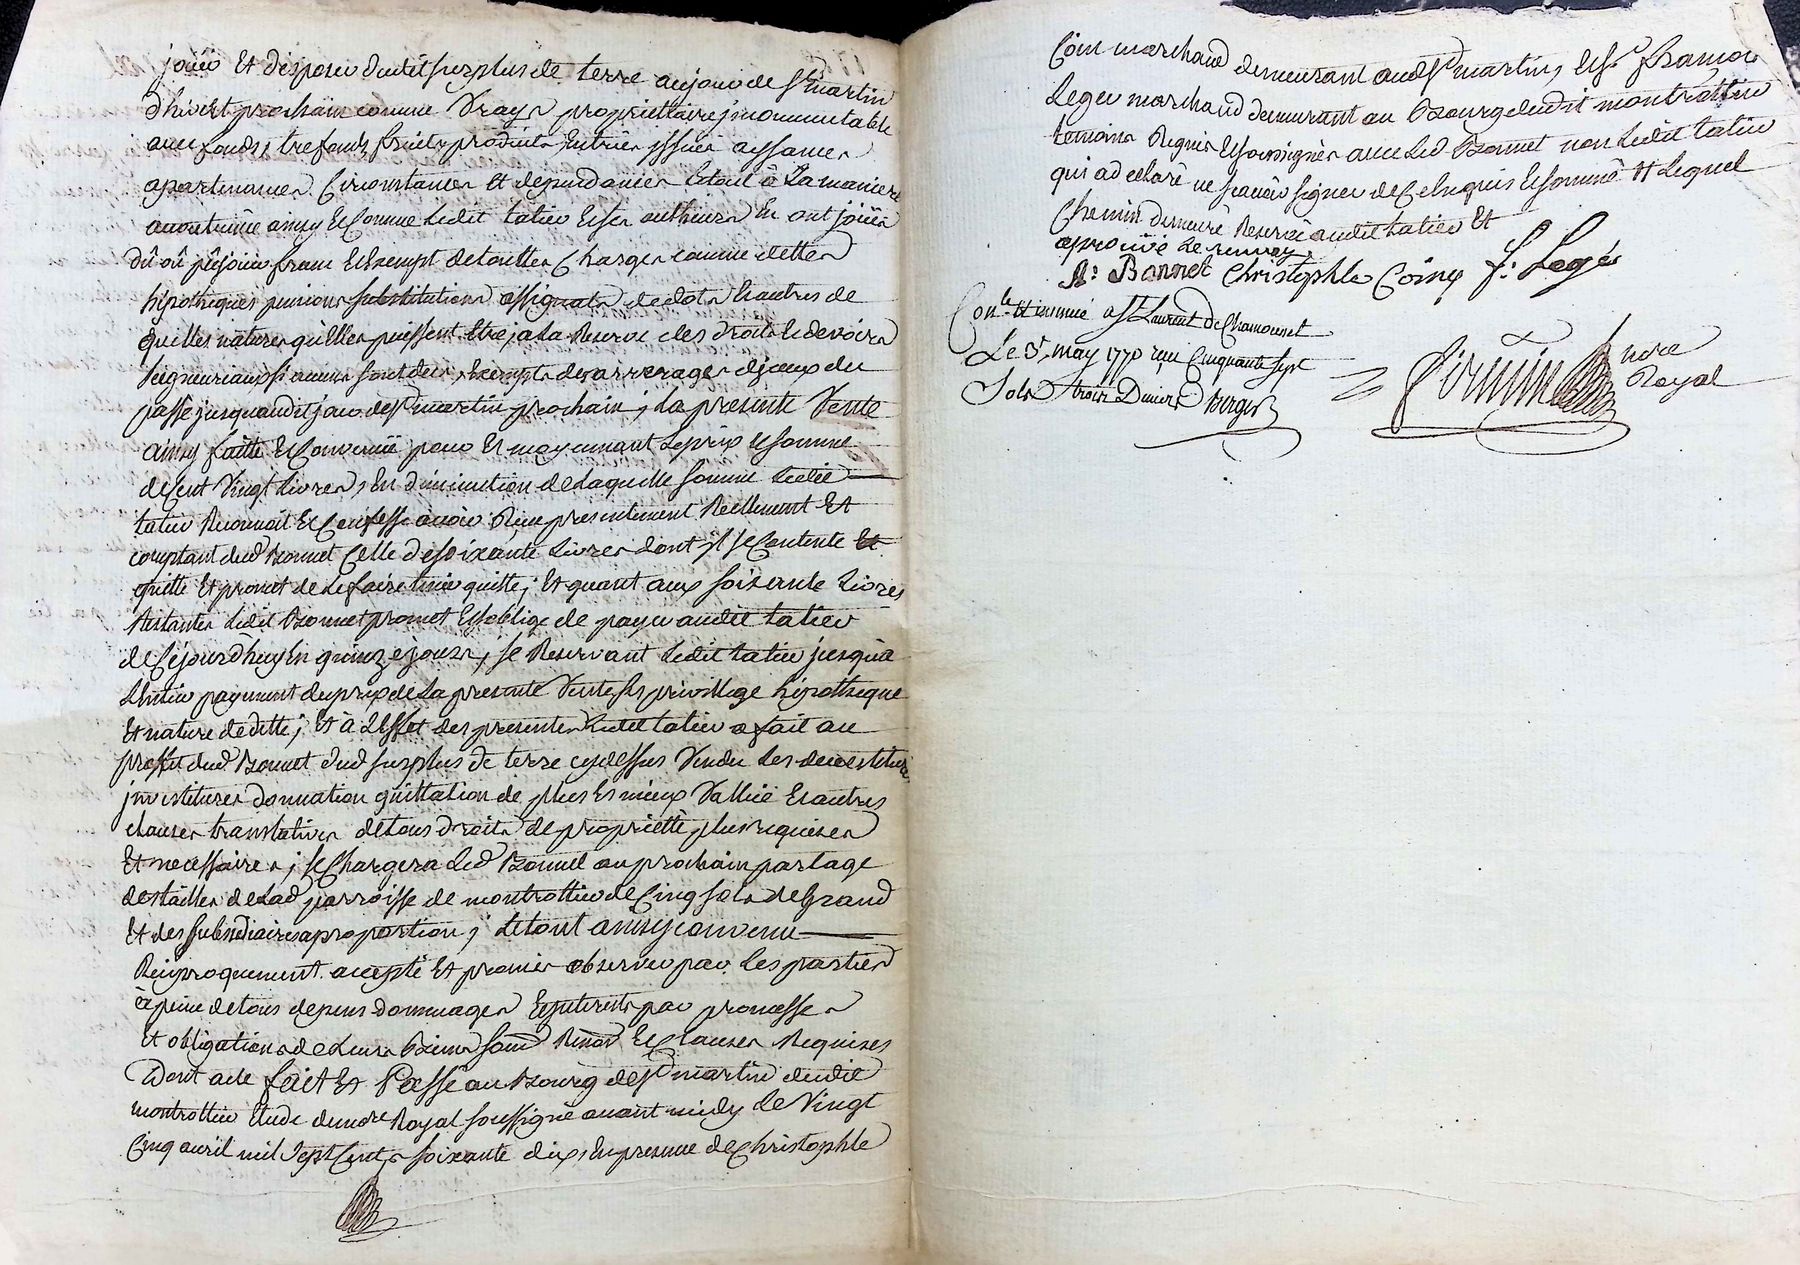 jouir Et disposer dudit surplus de terre au jour de St martin
d'hivert prochain comme Vrays proprietaire jncommutable
avec fonds, trefonds, fruits, produits, Entrées yssuës aysances
apartenances Circonstances Et dependances Letout a La maniere
acoutumée ainsy Et Comme Ledit tatier Et ses autheurs En ont joüis
dû où pû joüir franc Et Exempt detoutes Charges comme dettes
hipotheques pensions substitutions assignats dedots Et autres de
quelles natures quelles puissent Etre, a La Reserve des droits Et devoirs
seigneuriaux si aucuns sont deus, Exempts des arrerages d'jceux du
passé jusquaudit jour de St martin prochain; La presente Vente
ainsy faitte Et Convenuë pour Et moyennant Le prix Et somme
de Cent Vingt Livres, En diminution de Laquelle somme Ledit
tatier Reconnoit Et Confesse avoir Reçu presentement Reellement Et
comptant dud Bonnet Celle de soixante Livres dont jl se Contente Et
quitte Et promet de Le faire tenir quitte; Et quant aux soixante Livres
Restantes Ledit Bonnet promet Et s'oblige de payer audit tatier
de Cejourd'huy En quinze jours, se Reservant Ledit tatier jusqu'a
L'entier payement du prix de La presente Vente ses privillege hipotheque
Et nature de dette; Et a L'effet des presentes Ledit tatier a fait au
proffit dud Bonnet dud surplus de terre cydessus Vendu Les devestitures
jnvestitures donnation quittation de plus Et mieux Vallüe Et autres
clauses translatives detous droits de proprietté plus requises
Et necessaires; se Chargera Led Bonnet au prochain partage
destailles de Lad parroisse de montrottier de Cinq sols de Grand
Et des subsidiaires a proportion; Letout ainsy convenu
Reciproquement accepté Et promis observer par Les parties
à peine detous depens dommages Et jnterests par promesses
Et obligations de Leurs Biens soum Renon Et Clauses Requises
Dont acte fait Et Passé au Bourg de St martin dudit
montrottier Etude du nore Royal soussigné avant midy Le Vingt
Cinq avril mil sept Cents soixante dix, En presence de Christophle
Coin marchand demeurant aud St martin, Et sr francois
Leger marchand demeurant au Bourg dudit montrottier
temoins Requis Et soussignés avec Led Bonnet non Ledit tatier
qui a declaré ne sçavoir signer de Ce Enquis Et sommé Et Lequel
Chemin demeure Reservé audit tatier Et
aprouvé Le renvoy
Bonnet Christophle Coing f: Legér
Con.le Et jnsinué a St Laurent De Chamousset
Le 5 may 1770 reçu Cinquante sept
Sols trois Deniers Berger
firmin nore
Royal